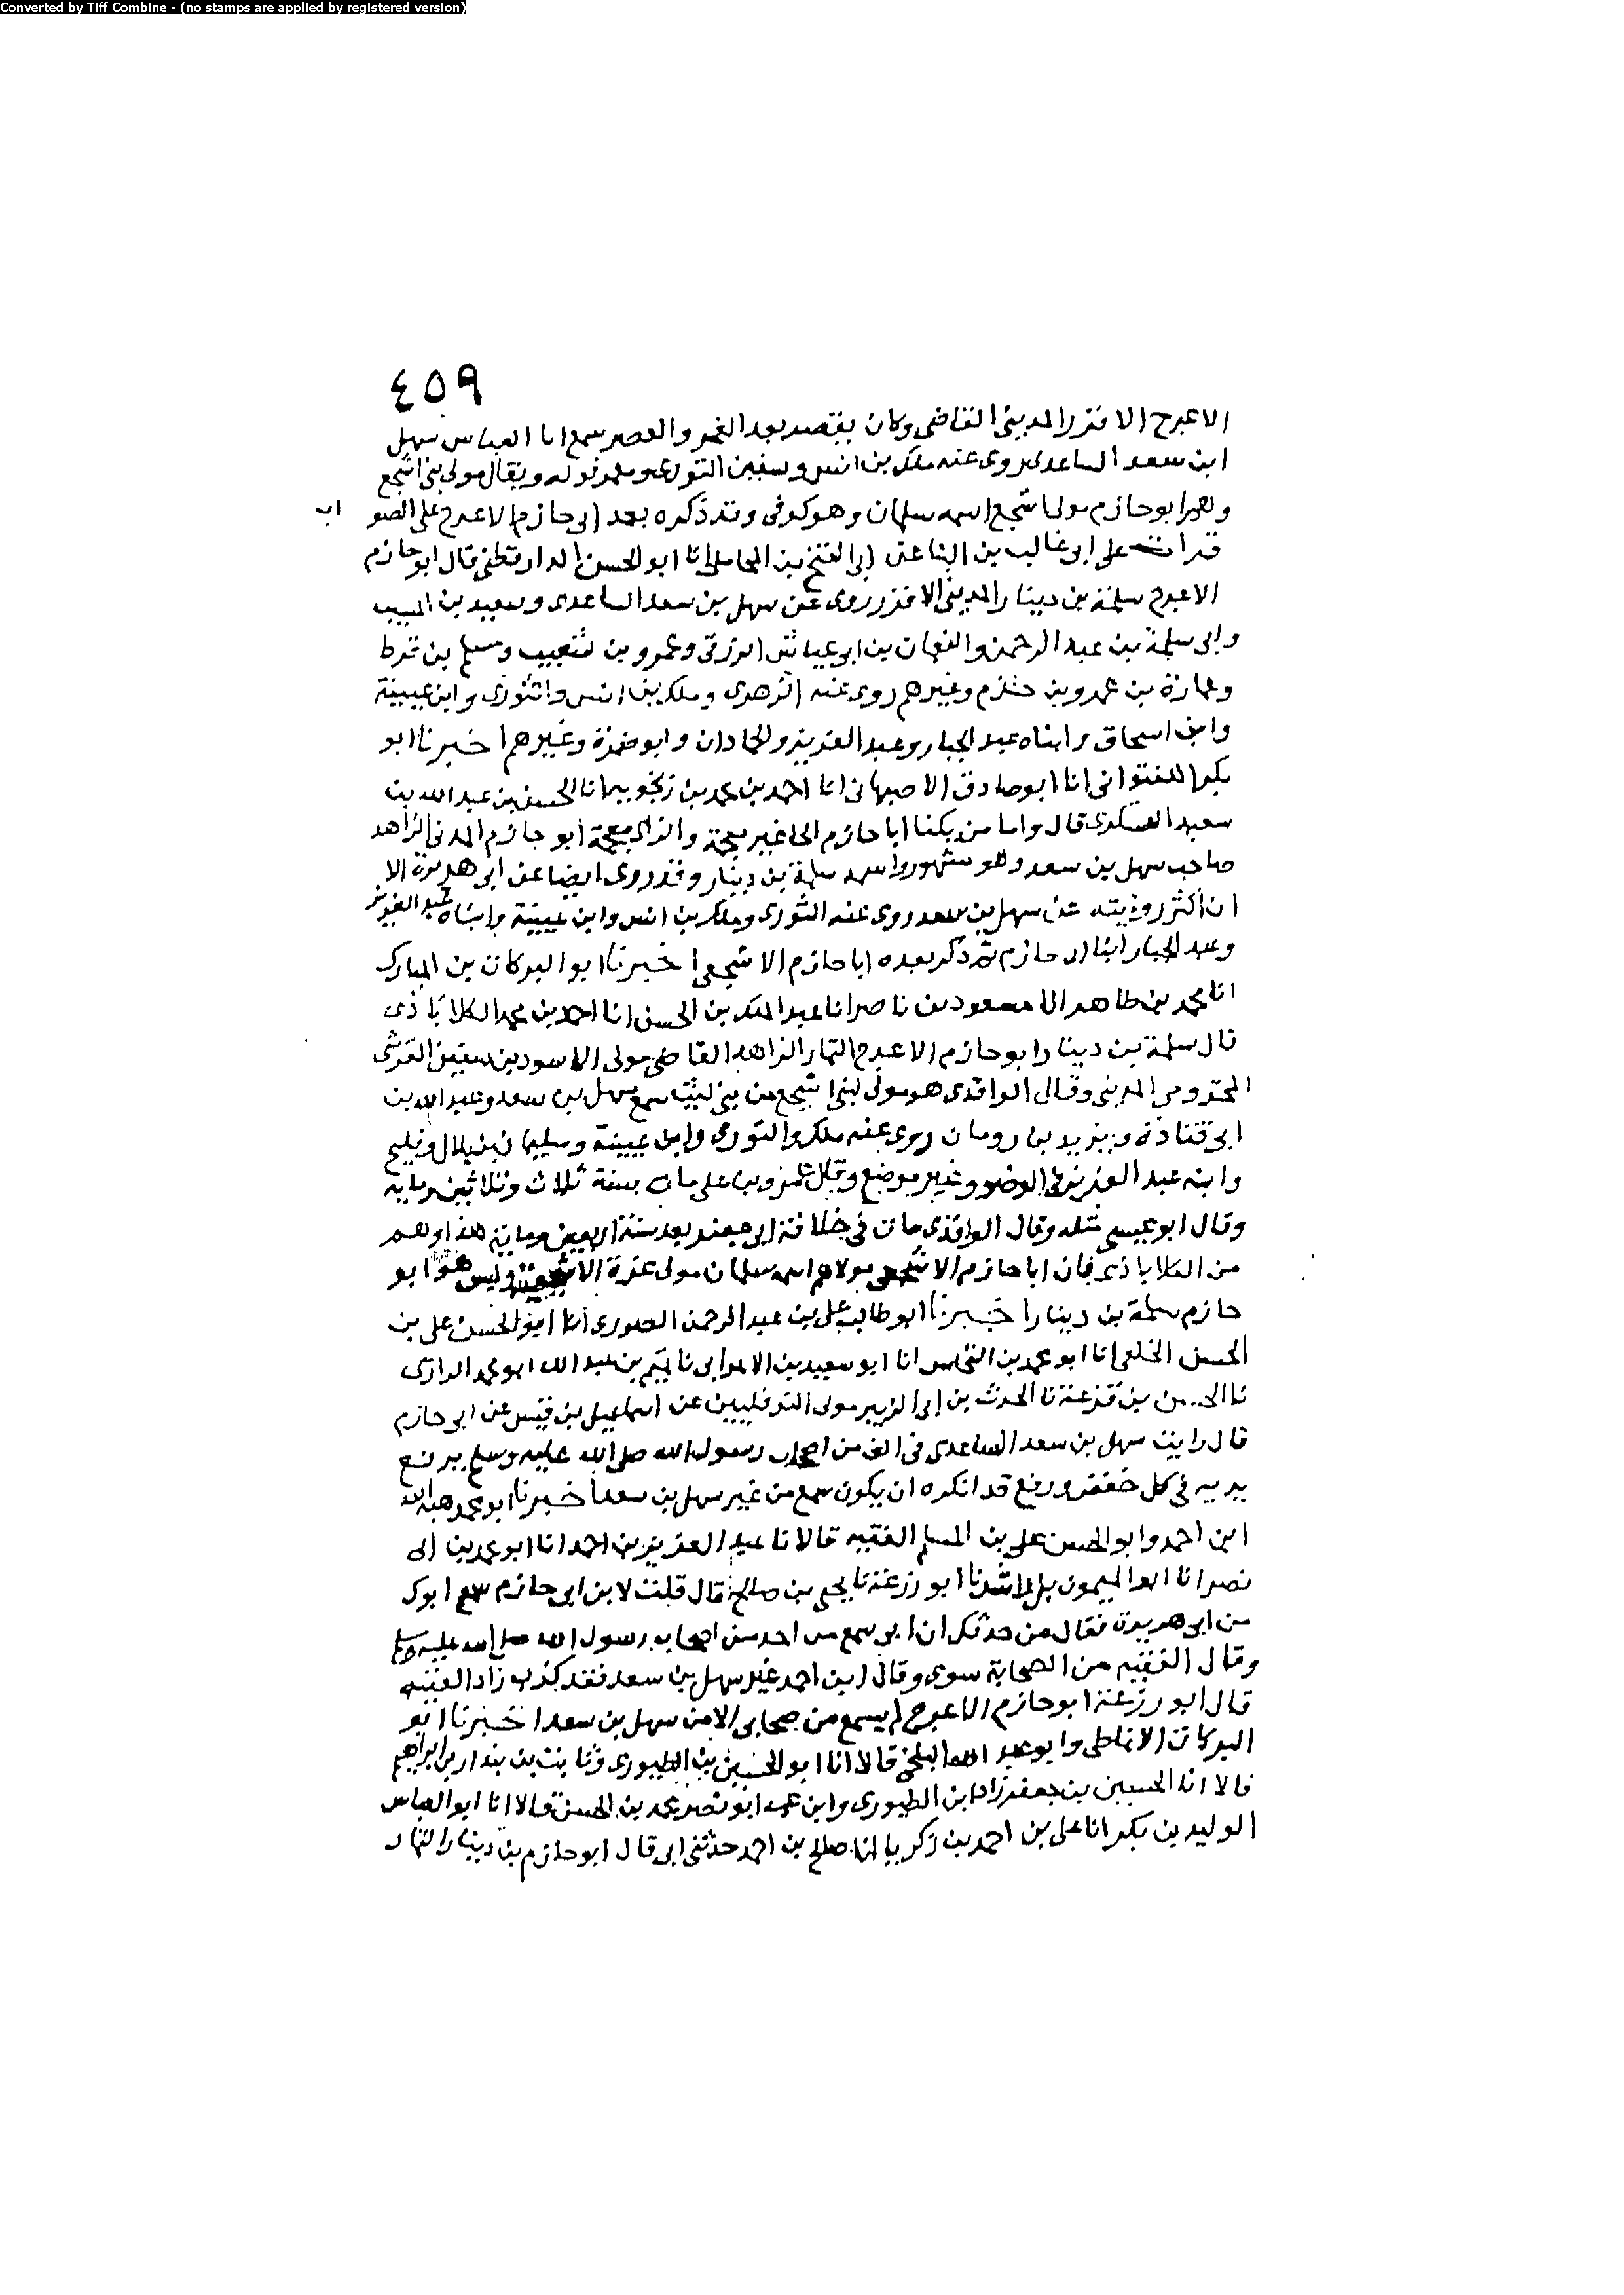 Converted by Tiff Combine - (no stamps are applied by registered version)
٤٥٩
الاعرج الافزر المديني القاضي وكان يقص بعد الفجر والعصر سمع ابا العباس سهل
ابن سعد الساعدي روى عنه ملك بن انس وسفين الثوري ومحمد قوله ويقال مولى بني اشجع
وابو حازم مولى اشجع اسمه سلمان وهو كوفي وقد ذكره بعد ابي حازم الاعرج على الصو
اب
قرات على ابي غالب بن البنا عن ابي الفتح بن المحاملي انا ابو الحسن الدارقطني قال ابو حازم
الاعرج سلمة بن دينار المديني الافزر روى عن سهل بن سعد الساعدي وسعيد بن المسيب
وابي سلمة بن عبد الرحمن والنعمان بن ابي عياش الزرقي وعمرو بن شعيب ومسلم بن قرط
وعمارة بن عمرو بن حزم وغيرهم روى عنه الزهري وملك بن انس والثوري وابن عيينة
وابن اسحاق وابناه عبد الجبار وعبد العزيز والحمادان وابو ضمرة وغيرهم اخبرنا ابو
بكر اللفتواني انا ابو صادق الاصبهاني انا احمد بن محمد بن زنجويه انا الحسن بن عبد الله بن
سعيد العسكري قال واما من يكنا ابا حازم الحا غير معجمة والزاي معجمة ابو حازم المدني الزاهد
صاحب سهل بن سعد وهو مشهور واسمه سلمة بن دينار وقد روى ايضا عن ابي هريرة الا
ان اكثر روايته عن سهل بن سعد روى عنه الثوري وملك بن انس وابن عيينة وابناه عبد العزيز
وعبد الجبار ابنا ابي حازم ثم ذكر بعده ابا حازم الاشجعي اخبرنا ابو البركات بن المبارك
انا محمد بن طاهر انا مسعود بن ناصر انا عبد الملك بن الحسن انا احمد بن محمد الكلاباذي
قال سلمة بن دينار ابو حازم الاعرج التمار الزاهد القاضي مولى الاسود بن سفين القرشي
المخزومي المديني وقال الواقدي هو مولى لبني اشجع من بني ليث سمع سهل بن سعد وعبد الله بن
ابي قتادة ويزيد بن رومان روى عنه ملك والثوري وابن عيينة وسليمان بن بلال وفليح
وابنه عبد العزيز في الوضوء وغير موضع وقال عمرو بن علي مات سنة ثلاث وثلاثين وماية
وقال ابو عيسى مثله وقال الواقدي مات في خلافة ابي جعفر بعد سنة اربعين وماية هذا وهم
من الكلاباذي فان ابا حازم الاشجعي مولاهم اسمه سلمان مولى عزة الاشجعية وليس هو ابو
حازم سلمة بن دينار اخبرنا ابو طالب علي بن عبد الرحمن الصوري انا ابو الحسن علي بن
الحسن الخلعي انا ابو محمد بن النحاس انا ابو سعيد بن الاعرابي نا تميم بن عبد الله ابو محمد الرازي
نا الحسين بن قزعة نا الحرث بن ابي الزبير مولى النوفليين عن اسماعيل بن قيس عن ابي حازم
قال رايت سهل بن سعد الساعدي في الف من اصحاب رسول الله صلى الله عليه وسلم يرفع
يديه في كل خفض ورفع قد انكره ان يكون سمع من غير سهل بن سعد اخبرنا ابو محمد هبة الله
ابن احمد وابو الحسن علي بن المسلم الفقيه قالا نا عبد العزيز بن احمد انا ابو محمد بن ابي
نصر انا ابو الميمون بن راشد نا ابو زرعة نا يحيى بن صالح قال قلت لابن ابي حازم سمع ابوك
من ابي هريرة فقال من حدثك ان ابي سمع من احد من اصحاب رسول الله صلى الله عليه وسلم
وقال الفقيه من الصحابة سوى وقال ابن احمد غير سهل بن سعد فقد كذب زاد الفقيه
قال ابو زرعة ابو حازم الاعرج لم يسمع من صحابي الا من سهل بن سعد اخبرنا ابو
البركات الانماطي وابو عبد الله البلخي قالا انا ابو الحسين بن الطيوري وثابت بن بندار بن ابراهيم
قالا انا الحسين بن جعفر زاد ابن الطيوري وابن عمه ابو نصر محمد بن الحسن قالا انا ابو العباس
الوليد بن بكر انا علي بن احمد بن زكريا انا صالح بن احمد حدثني ابي قال ابو حازم بن دينار التمار